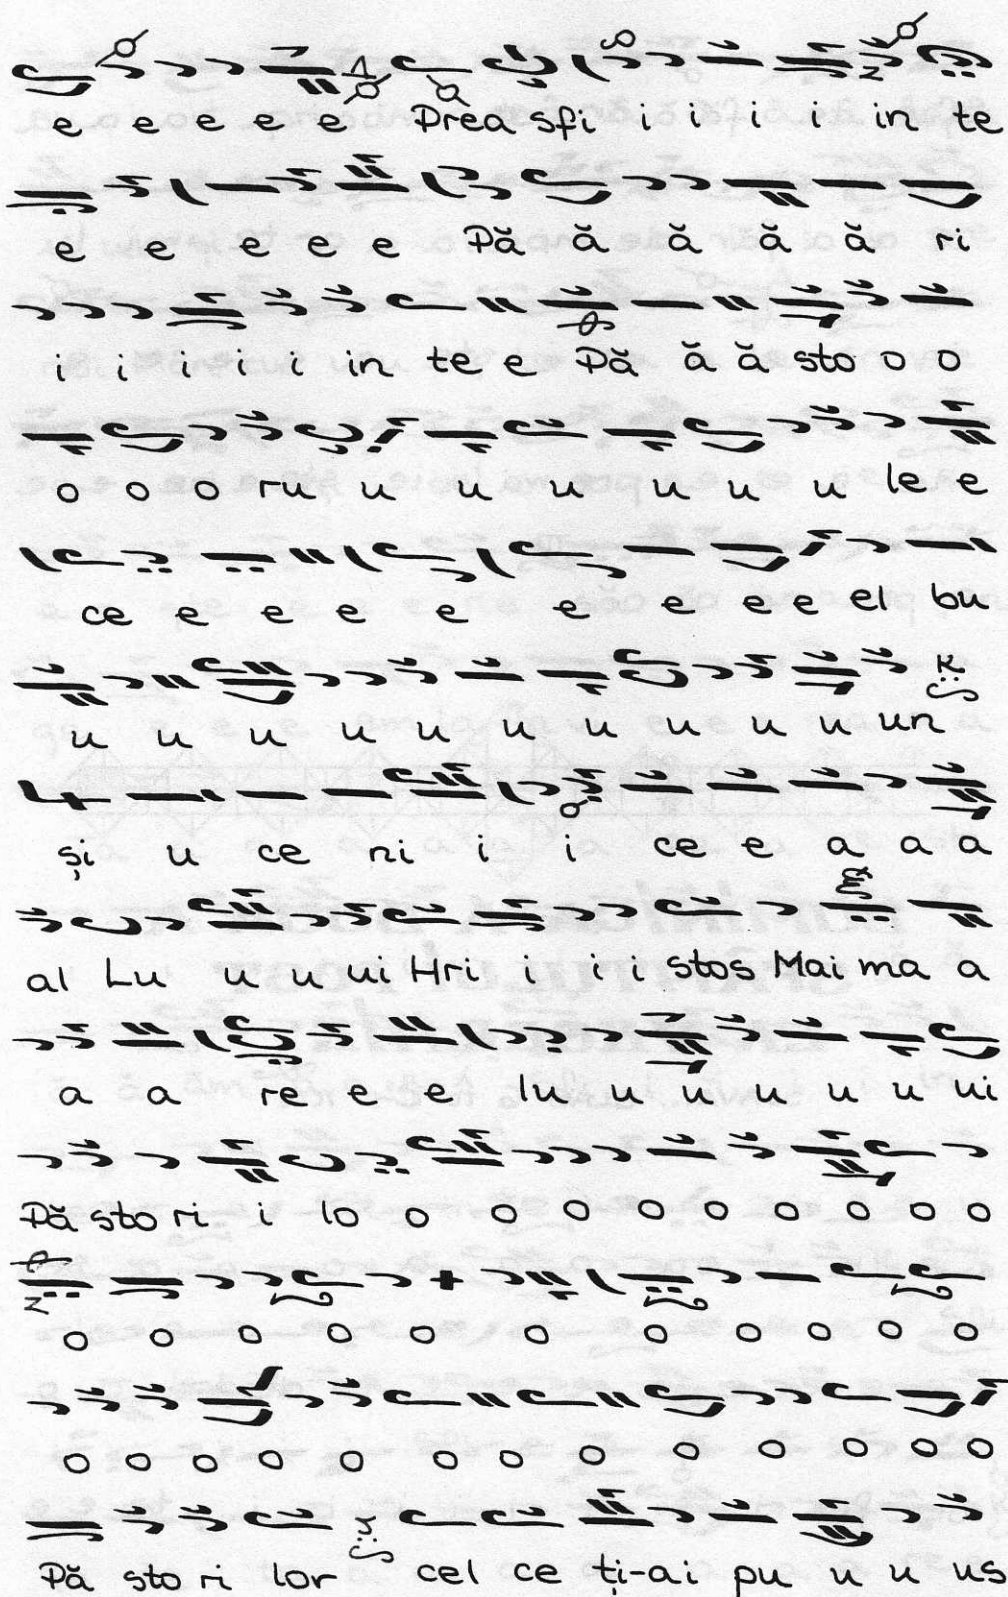 e e e e e Prea sfi i i i i in te
e e e e e Pă ă ă ă ă ri
i i i i i in te e Pă ă ă sto o o
o o o ru u u u u u u le e
ce e e e e e e e el bu
u u u u u u u u u u un
și u ce ni i i ce e a a a
al Lu u u ui Hri i i i stos Mai ma a
a a re e e lu u u u u u ui
Pă sto ri i lo o o o o o o o o
o o o o o o o o o o o
o o o o o o o o o o o o
Pă sto ri lor cel ce ți-ai pu u u us